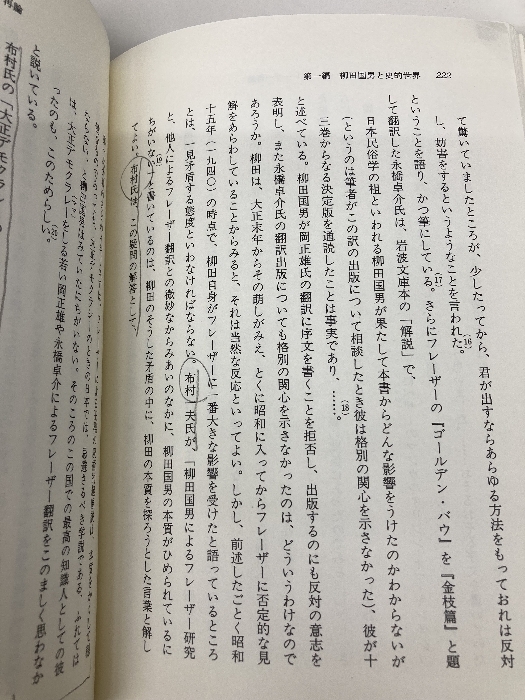 第一編　柳田国男と史的世界　222
て驚いていましたところが、少したってから、君が出すならあらゆる方法をもっておれは反対
し、妨害をするというようなことを言われた。(16)
ということを語り、かつ筆にしている。(17)さらにフレーザーの『ゴールデン・バウ』を『金枝篇』と題
して翻訳した永橋卓介氏は、岩波文庫本の「解説」で、
日本民俗学の祖といわれる柳田国男が果たして本書からどんな影響をうけたのかわからないが
(というのは筆者がこの訳の出版について相談したとき彼は格別の関心を示さなかった)、彼が十
三巻からなる決定版を通読したことは事実であり、……。(18)
と述べている。柳田国男が岡正雄氏の翻訳に序文を書くことを拒否し、出版するのにも反対の意志を
表明し、また永橋卓介氏の翻訳出版についても格別の関心を示さなかったのは、どういうわけなので
あろうか。柳田は、大正末年からその萌しがみえ、とくに昭和に入ってからフレーザーに否定的な見
解をあらわしていることからみると、それは当然な反応といってよい。しかし、前述したごとく昭和
十五年(一九四〇)の時点で、柳田自身がフレーザーに一番大きな影響を受けたと語っているところ
とは、一見矛盾する態度といわなければならない。布村一夫氏が、「柳田国男によるフレーザー研究
と、他人によるフレーザー翻訳との微妙なからみあいのなかに、柳田国男の本質がひめられているに
ちがいない」(19)と書いているのは、柳田のそうした矛盾の中に、柳田の本質を探ろうとした言葉と解し
てよい。布村氏は、この疑問の解答として、
は、大正デモクラシーをこえる若い岡正雄や永橋卓介によるフレーザー翻訳をこのましく思わなか
ったのも、このためらしい。
と説いている。
布村氏の「大正デモクラシー
再論